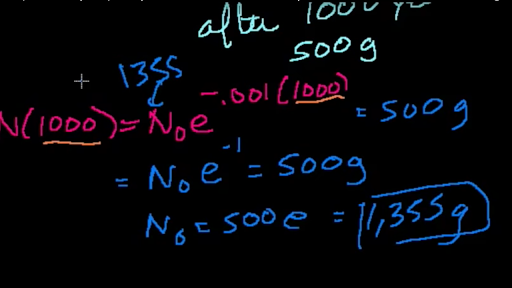 after 1000
500g
1355
N(1000) = N₀e^-.001(1000) = 500g
= N₀e^-1 = 500g
N₀ = 500e = 1,355g